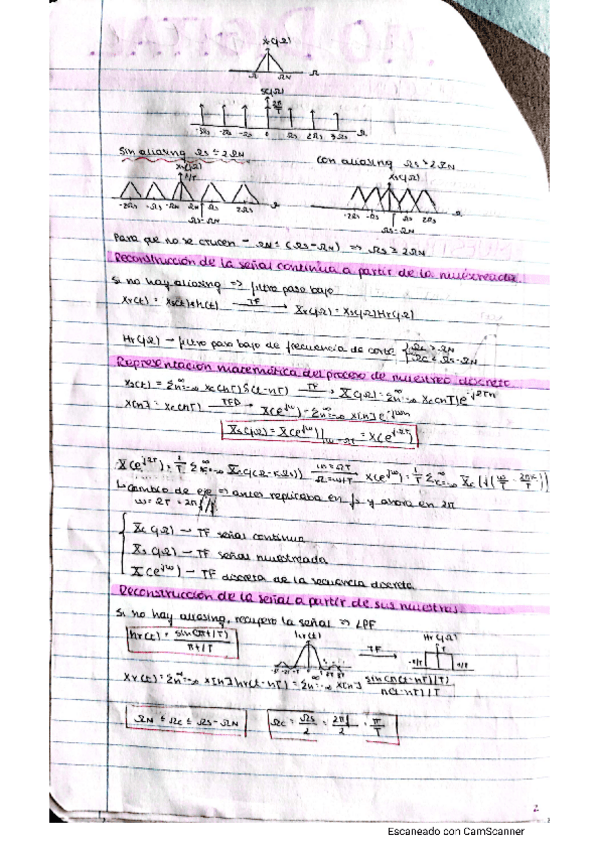 Xc(jΩ)
ΩN Ω
S(jΩ)
2π/T
-3Ωs -2Ωs -Ωs 0 Ωs 2Ωs 3Ωs Ω
Sin aliasing Ωs ≥ 2ΩN
con aliasing Ωs > 2ΩN
Xs(jΩ)
1/T
Xs(jΩ)
-2Ωs -Ωs -ΩN ΩN Ωs 2Ωs Ω
-2Ωs -Ωs Ωs 2Ωs Ω
Ωs-ΩN
Ωs-ΩN
Para que no se crucen - ΩN ≤ (Ωs-ΩN) => Ωs ≥ 2ΩN
Reconstrucción de la señal continua a partir de la muestreada
Si no hay aliasing => filtro paso bajo
Xr(t) = Xs(t)*h(t) TF → Xr(jΩ) = Xs(jΩ)Hr(jΩ)
Hr(jΩ) → filtro paso bajo de frecuencia de corte { Ωc > ΩN
Ωc ≤ Ωs-ΩN
Representación matemática del proceso de muestreo discreto
xs(t) = Σn=-∞^∞ xc(nT)δ(t-nT) TF → Xs(jΩ) = Σn=-∞^∞ xc(nT)e^-jΩTn
x[n] = xc(nT) TFD → X(e^jω) = Σn=-∞^∞ x[n]e^-jωn
Xs(jΩ) = X(e^jω)|ω=ΩT = X(e^jΩT)
X(e^jΩT) = 1/T Σk=-∞^∞ Xc(j(Ω-kΩs)) ω=ΩT Ω=ω/T → X(e^jω) = 1/T Σk=-∞^∞ Xc(j(ω/T - 2πk/T))
↳ cambio de eje => antes replicaba en fs y ahora en 2π
ω = ΩT = 2π f/fs
Xc(jΩ) → TF señal continua
Xs(jΩ) → TF señal muestreada
X(e^jω) → TF discreta de la secuencia discreta
Reconstrucción de la señal a partir de sus muestras
Si no hay aliasing, recupero la señal => LPF
hr(t) = sin(πt/T) / πt/T
hr(t)
TF →
Hr(jΩ)
T
-π/T π/T
xr(t) = Σn=-∞^∞ x[n]hr(t-nT) = Σn=-∞^∞ x[n] sin(π(t-nT)/T) / π(t-nT)/T
ΩN ≤ Ωc ≤ Ωs-ΩN
Ωc = Ωs/2 = 2πf/2 = π/T
2
Escaneado con CamScanner